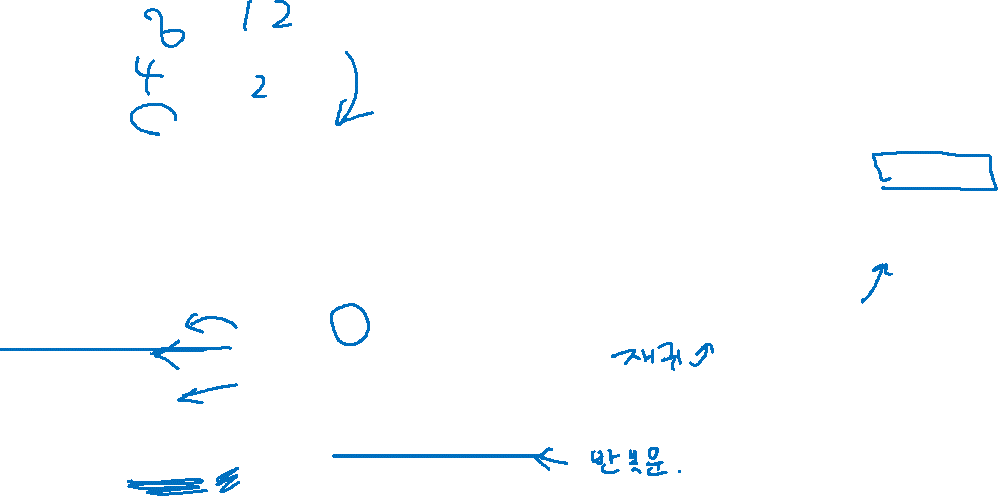 8 12
4 2
재귀
반복문.